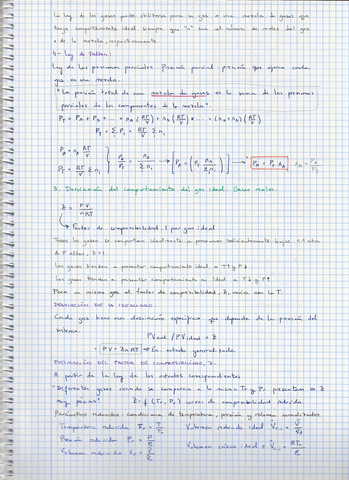 La ley de los gases puede utilizarse para un gas o una mezcla de gases que
tenga comportamiento ideal siempre que "n" sea el número de moles del gas
o de la mezcla, respectivamente.
4- Ley de Dalton:
Ley de las presiones parciales. Presión parcial: presión que ejerce cada
gas en una mezcla.
"La presión total de una mezcla de gases es la suma de las presiones
parciales de los componentes de la mezcla".
P_T = P_A + P_B + ... = n_A (RT/V) + n_B (RT/V) + ... = (n_A + n_B) (RT/V)
P_T = Σ P_i = RT/V Σ n_i
P_A = n_A RT/V
P_T = RT/V Σ n_i
P_A/P_T = n_A/Σ n_i → [P_A = (P_T n_A/Σ n_i)] → P_A = P_T x_A
5. Desviación del comportamiento del gas ideal. Gases reales.
Z = PV/nRT
Factor de compresibilidad. 1 para gas ideal
Todos los gases se comportan idealmente a presiones suficientemente bajas
A P altas, Z>1
Los gases tienden a presentar comportamiento ideal a T↑ y P↓
Los gases tienden a presentar comportamiento no ideal a T↓ y P↑
Para un mismo gas el factor de compresibilidad, Z, varía con la T.
DESVIACIÓN DE LA IDEALIDAD
Cada gas tiene una desviación específica que depende de la presión del
sistema.
PV real / PV ideal = Z
PV = Z n RT → Ec. estado generalizada
ESTIMACIÓN DEL FACTOR DE COMPRESIBILIDAD, Z.
A partir de la Ley de los estados correspondientes
"Diferentes gases cuando se comparan a la misma Tr y Pr presentan un Z
muy próximo" Z = f (Tr, Pr) curvas de compresibilidad reducida
Parámetros reducidos: condiciones de temperatura, presión y volumen normalizadas
Temperatura reducida Tr = T/Tc
Volumen reducido ideal
Presión reducida Pr = P/Pc
Volumen crítico ideal = RTc/Pc
Volumen reducido Vr = V/Vc